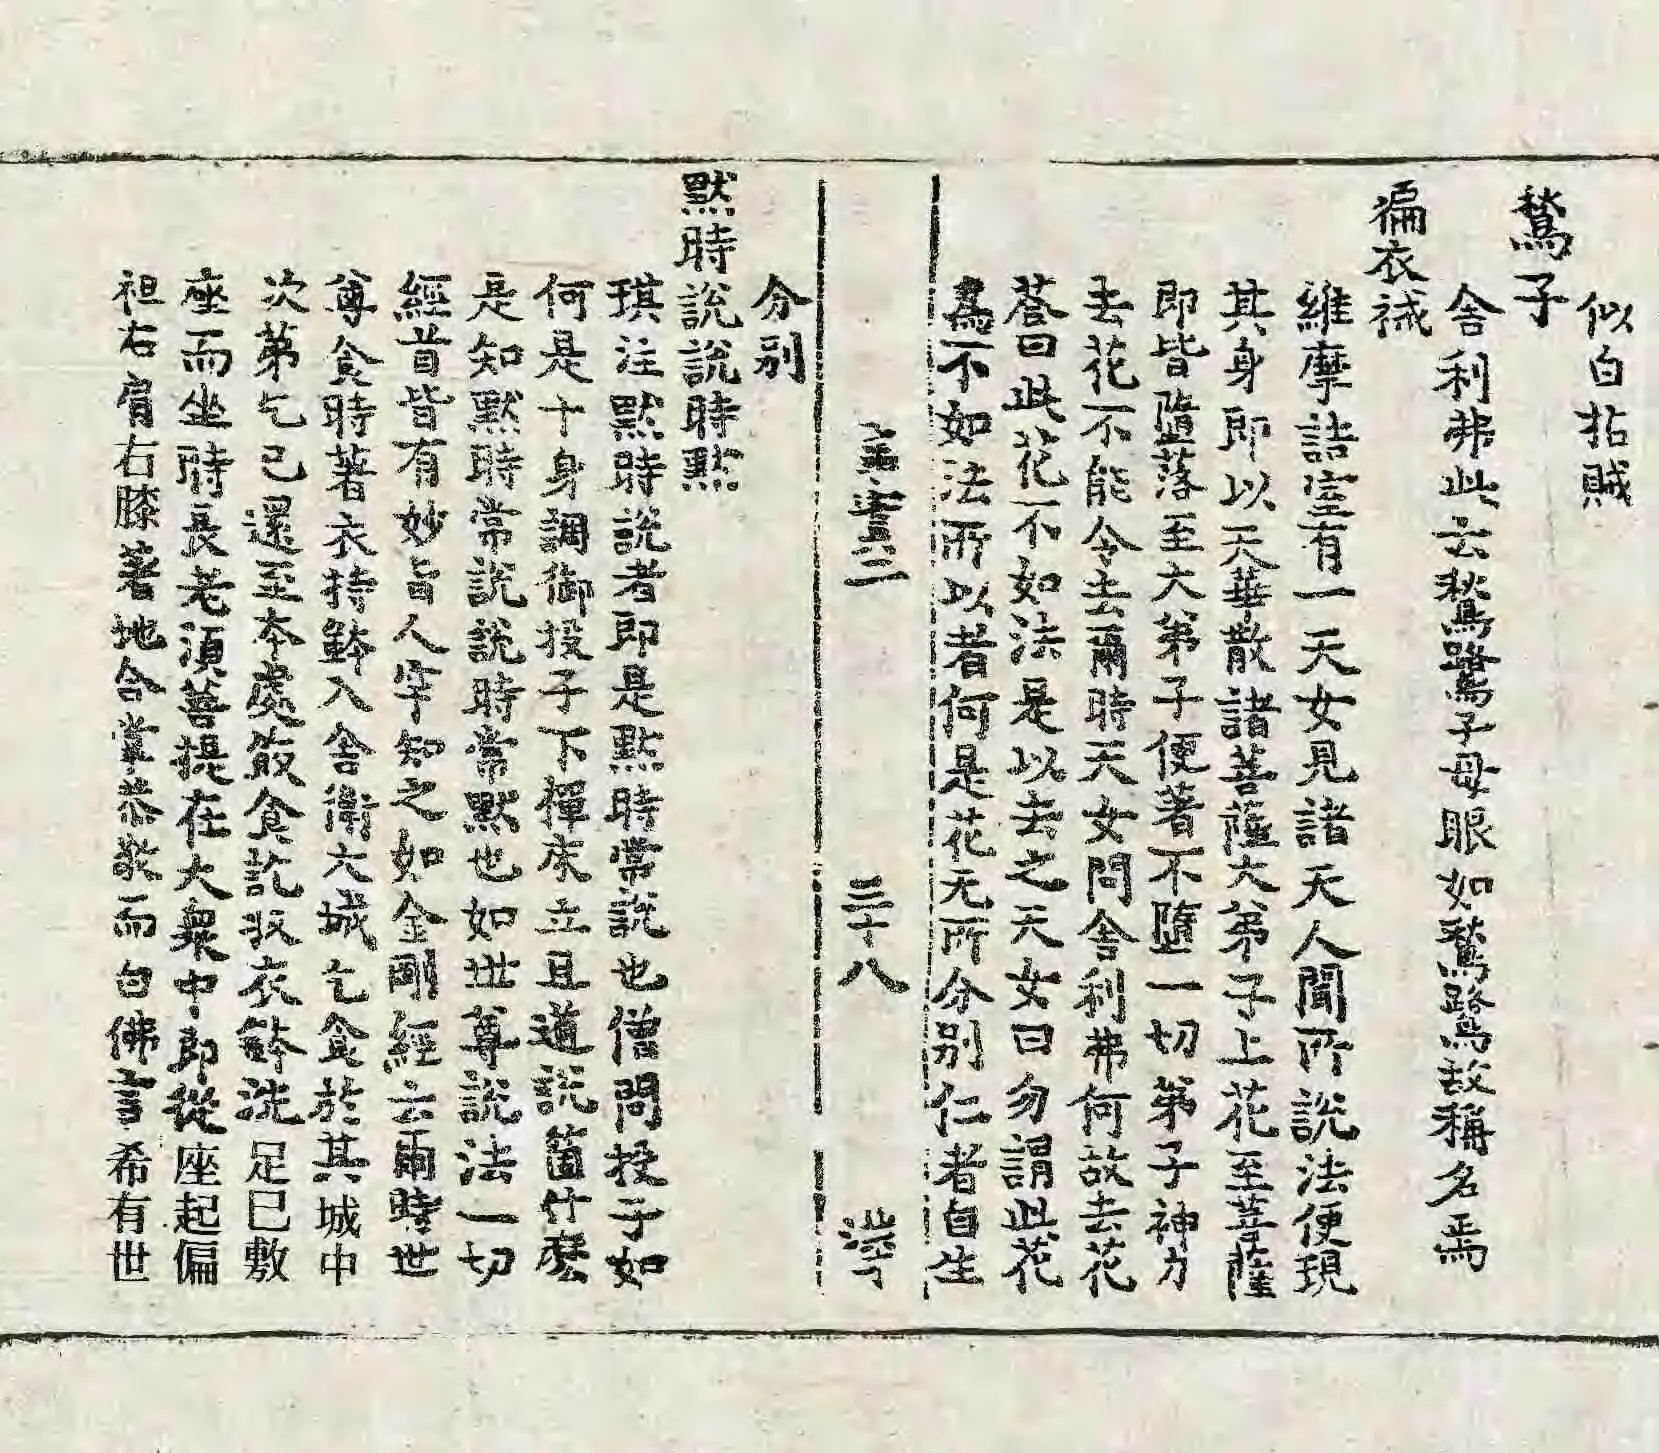 似白拈賊
鶖子
舍利弗此云鶖鷺子母眼如鶖鷺故稱名焉
徧衣祴
維摩詰室有一天女見諸天人聞所說法便現
其身即以天華散諸菩薩大弟子上花至菩薩
即皆墮落至大弟子便著不墮一切弟子神力
去花不能令去爾時天女問舍利弗何故去花
荅曰此花不如法是以去之天女曰勿謂此花
為不如法所以者何是花无所分別仁者自生
三十八
分別
默時說說時默
琪注默時說者即是默時常說也僧問投子如
何是十身調御投子下禪床立且道說箇什麽
是知默時常說說時常默也如世尊說法一切
經首皆有妙旨人罕知之如金剛經云爾時世
尊食時著衣持鉢入舍衛大城乞食於其城中
次第乞已還至本處飯食訖收衣鉢洗足巳敷
座而坐時長老須菩提在大衆中即從座起偏
袒右肩右膝著地合掌恭敬而白佛言希有世